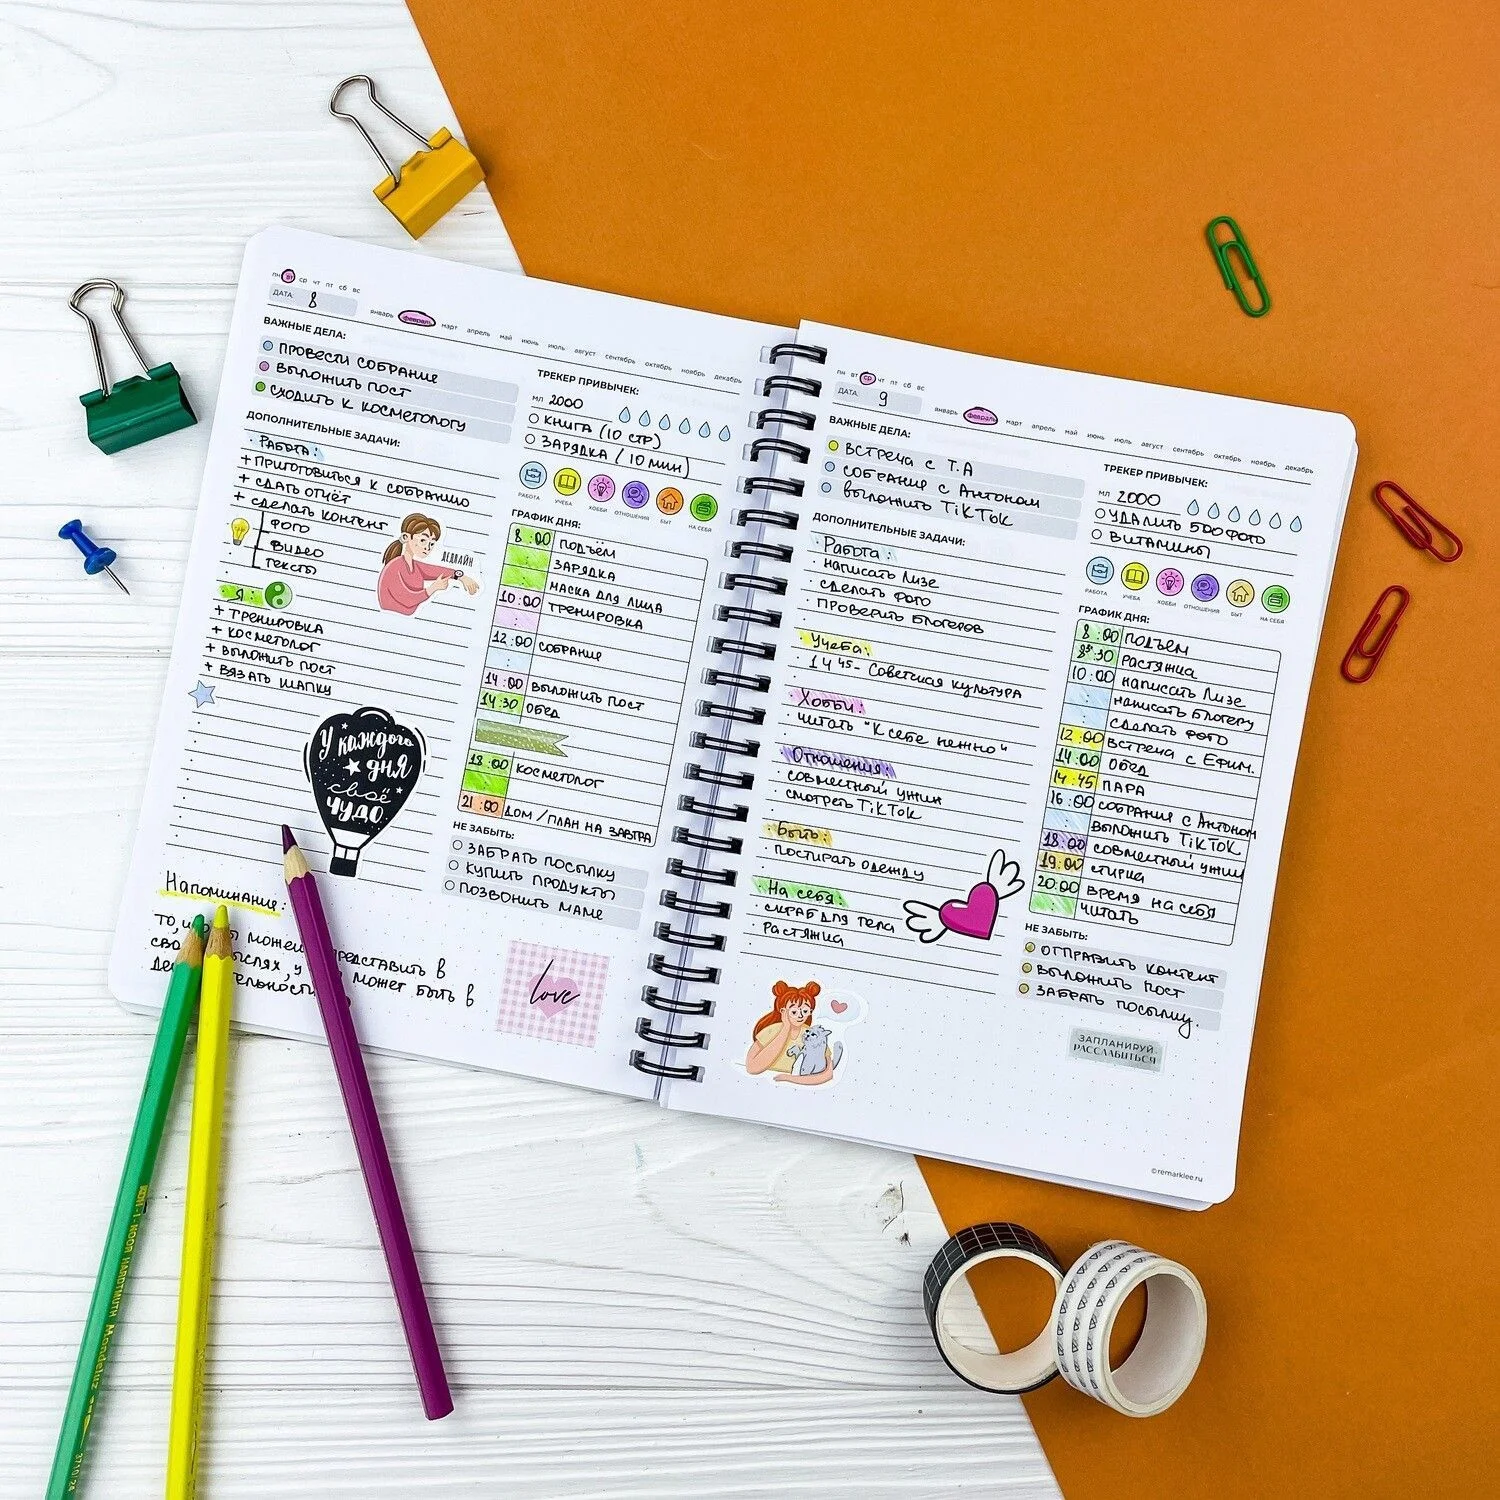 пн вт ср чт пт сб вс
ДАТА: 8
январь февраль март апрель май июнь июль август сентябрь октябрь ноябрь декабрь
ВАЖНЫЕ ДЕЛА:
ПРОВЕСТИ СОБРАНИЕ
ВЫЛОЖИТЬ ПОСТ
СХОДИТЬ К КОСМЕТОЛОГУ
ДОПОЛНИТЕЛЬНЫЕ ЗАДАЧИ:
· РАБОТА:
+ ПРИГОТОВИТЬСЯ К СОБРАНИЮ
+ СДАТЬ ОТЧЁТ
+ СДЕЛАТЬ КОНТЕНТ
ФОТО
ВИДЕО
ТЕКСТЫ
ДЕДЛАЙН
· Я:
+ ТРЕНИРОВКА
+ КОСМЕТОЛОГ
+ ВЫЛОЖИТЬ ПОСТ
+ ВЯЗАТЬ ШАПКУ
У каждого
дня
своё
чудо
Напоминание:
представить в
может быть в
ТРЕКЕР ПРИВЫЧЕК:
мл 2000
КНИГА (10 СТР)
ЗАРЯДКА (10 МИН)
РАБОТА УЧЕБА ХОББИ ОТНОШЕНИЯ БЫТ НА СЕБЯ
ГРАФИК ДНЯ:
8:00 ПОДЪЁМ
ЗАРЯДКА
МАСКА ДЛЯ ЛИЦА
10:00 ТРЕНИРОВКА
12:00 СОБРАНИЕ
14:00 ВЫЛОЖИТЬ ПОСТ
14:30 ОБЕД
18:00 КОСМЕТОЛОГ
21:00 ДОМ / ПЛАН НА ЗАВТРА
НЕ ЗАБЫТЬ:
ЗАБРАТЬ ПОСЫЛКУ
КУПИТЬ ПРОДУКТЫ
ПОЗВОНИТЬ МАМЕ
love
пн вт ср чт пт сб вс
ДАТА: 9
январь февраль март апрель май июнь июль август сентябрь октябрь ноябрь декабрь
ВАЖНЫЕ ДЕЛА:
ВСТРЕЧА С Т.А
СОБРАНИЕ С АНТОНОМ
ВЫЛОЖИТЬ TikTok
ДОПОЛНИТЕЛЬНЫЕ ЗАДАЧИ:
· Работа:
· написать Лизе
· сделать фото
· проверить блогеров
· Учеба:
· 14 45 - Советская культура
· Хобби:
· читать "К себе нежно"
· Отношения:
· совместный ужин
· смотреть TikTok
· Быть:
· постирать одежду
· На себя:
· скраб для тела
· растяжка
ТРЕКЕР ПРИВЫЧЕК:
мл 2000
УДАЛИТЬ 500 ФОТО
ВИТАМИНЫ
РАБОТА УЧЕБА ХОББИ ОТНОШЕНИЯ БЫТ НА СЕБЯ
ГРАФИК ДНЯ:
8:00 ПОДЪЕМ
РАСТЯЖКА
10:00 НАПИСАТЬ ЛИЗЕ
НАПИСАТЬ БЛОГЕРУ
СДЕЛАТЬ ФОТО
12:00 ВСТРЕЧА С ЕФИМ.
14:00 ОБЕД
14:45 ПАРА
16:00 СОБРАНИЕ С АНТОНОМ
ВЫЛОЖИТЬ TikTok
18:00 СОВМЕСТНЫЙ УЖИН
19:00 СТИРКА
20:00 ВРЕМЯ НА СЕБЯ
ЧИТАТЬ
НЕ ЗАБЫТЬ:
ОТПРАВИТЬ КОНТЕНТ
ВЫЛОЖИТЬ ПОСТ
ЗАБРАТЬ ПОСЫЛКУ.
ЗАПЛАНИРУЙ
РАССЛАБИТЬСЯ
©remarklee.ru
KOH-I-NOOR HARDTMUTH Mondeluz